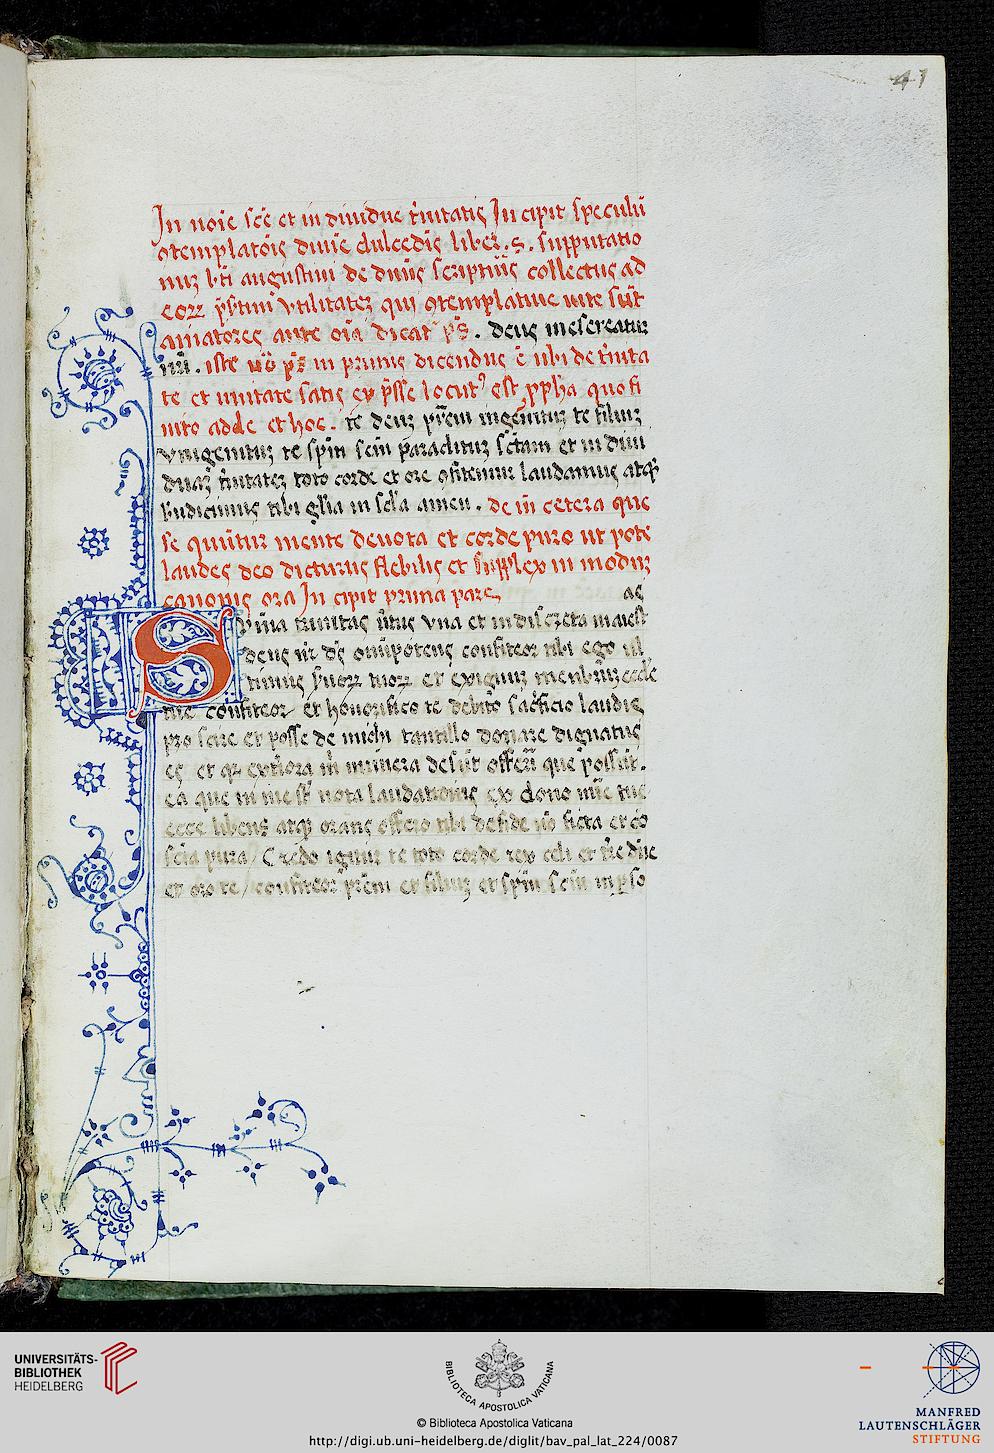 41
In noīe scē et in diuidue t'nitatis In cipit speculū
9templatōis diuīe dulcedīs liber. s. supputatio
nuz bt̄i augustini de diuīs scriptur̄is collectus ad
eorz utilitatez qui 9templatiue uite sūt
amatores ante oīa dicat' ps. deus misereatur
nr̄i. iste in primis dicendus ē ubi de t'nita
te et unitate satis exp̄sse locut9 est ppha quo fi
nito adde et hoc. te deuz pr̄em ingenituz te filiuz
vnigenituz te spm̄ scm̄ paraclituz sctam et in diui
duaz t'nitatez toto corde et ore 9fitemur laudamus atq3
bn̄dicimus tibi gl̄ia in scl̄a amen. de īn cetera que
se quūtur mente deuota et corde puro ut pote
laudes deo dicturus flebilis et supplex in moduz
canonis ora In cipit prima pars
ac
Sūma trinitas u'tus vna et in discreta maiest
deus nr̄ ds omīpotens confiteor tibi ego ul
timus s'uorz tuorz et exiguuz menbruz eccl'e
tue confiteor et honorifico te debito sac'ficio laudis
pro scire et posse de michi tantillo donare dignatus
es et q2 ext'iora m̄ munera desūt offerri que possūt.
ea que in me st̄ uota laudationis ex dono mīe tue
ecce libens atq3 orans offero tibi de fide nō ficta et cō
scīa pura Credo igitur te toto corde rex celi et t're dn̄e
et oro te / confiteor pr̄em et filiuz et spm̄ scm̄ in pso
UNIVERSITÄTS-
BIBLIOTHEK
HEIDELBERG
BIBLIOTECA APOSTOLICA VATICANA
© Biblioteca Apostolica Vaticana
http://digi.ub.uni-heidelberg.de/diglit/bav_pal_lat_224/0087
MANFRED
LAUTENSCHLÄGER
STIFTUNG